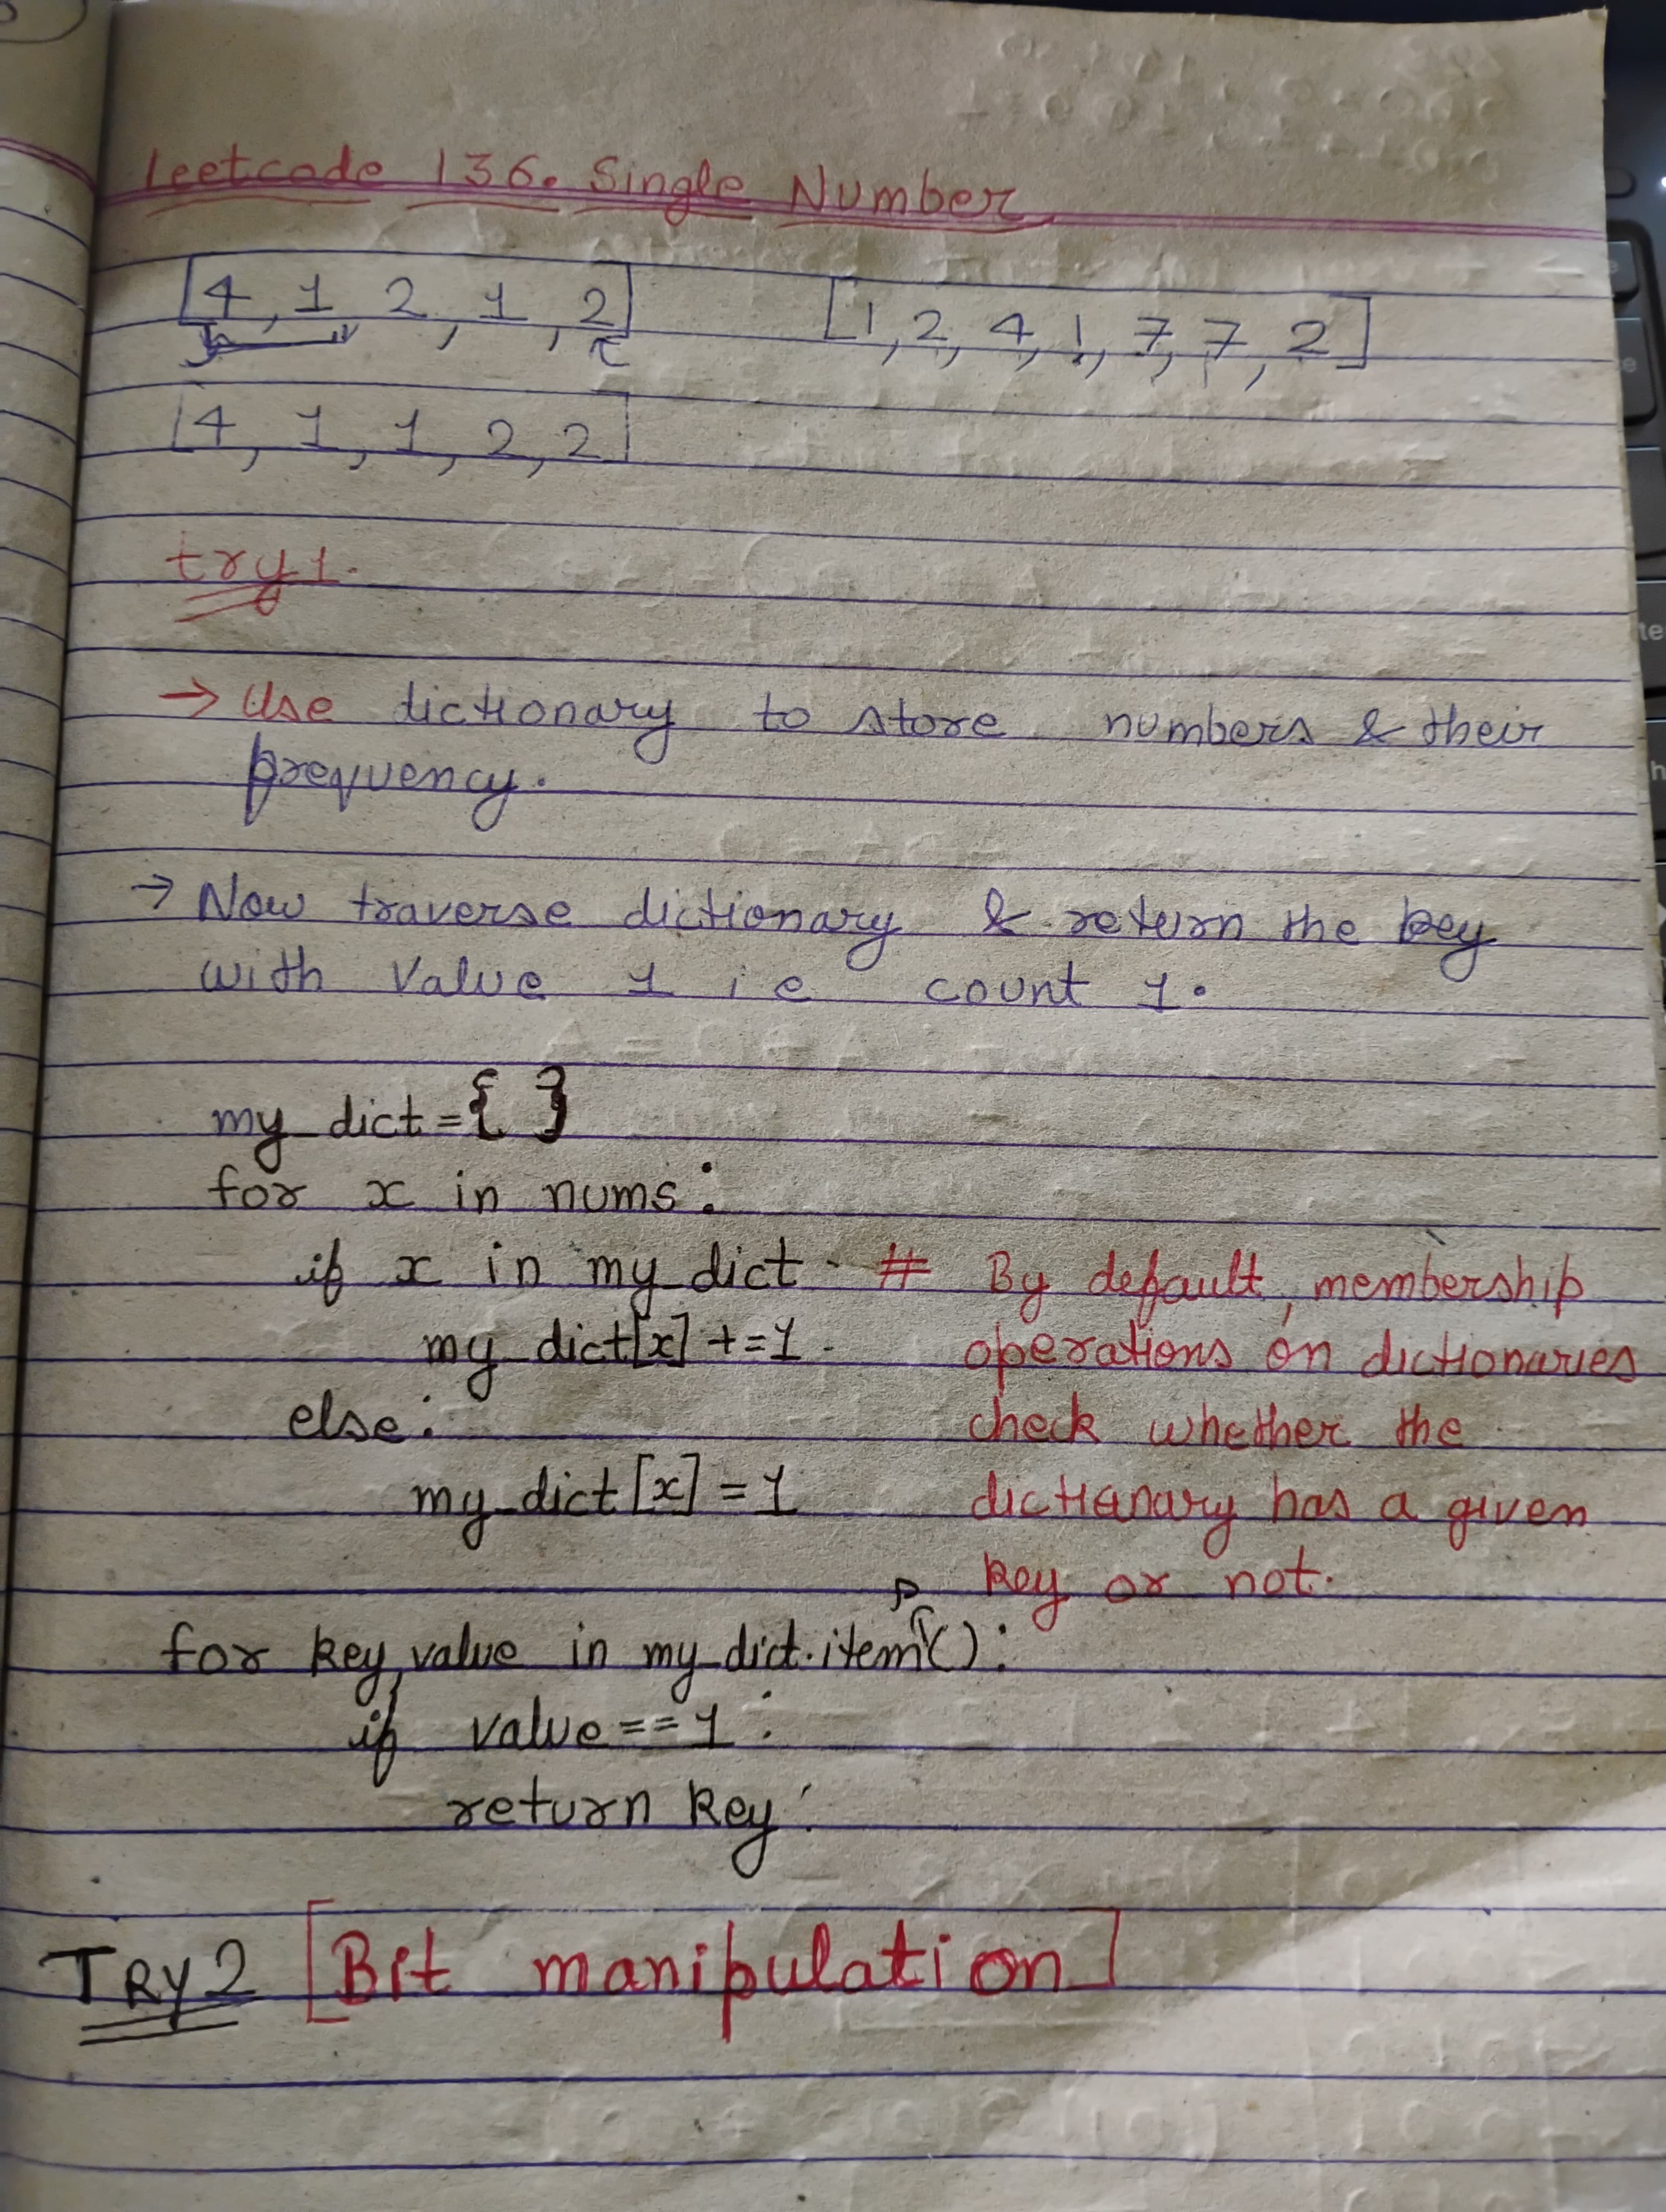 Leetcode 136. Single Number
[4, 1 2, 1, 2]
[1, 2, 4, 1, 7, 7, 2]
[4, 1, 1, 2, 2]
try 1.
→ Use dictionary to store numbers & their
frequency.
→ Now traverse dictionary & return the key
with Value 1 i e count 1.
my_dict={ }
for x in nums:
if x in my_dict # By default, membership
my_dict[x] +=1 operations on dictionaries
else: check whether the
my_dict[x] = 1 dictionary has a given
key or not.
for key,value in my_dict.items():
if value==1:
return key:
TRY2 [Bit manipulation]